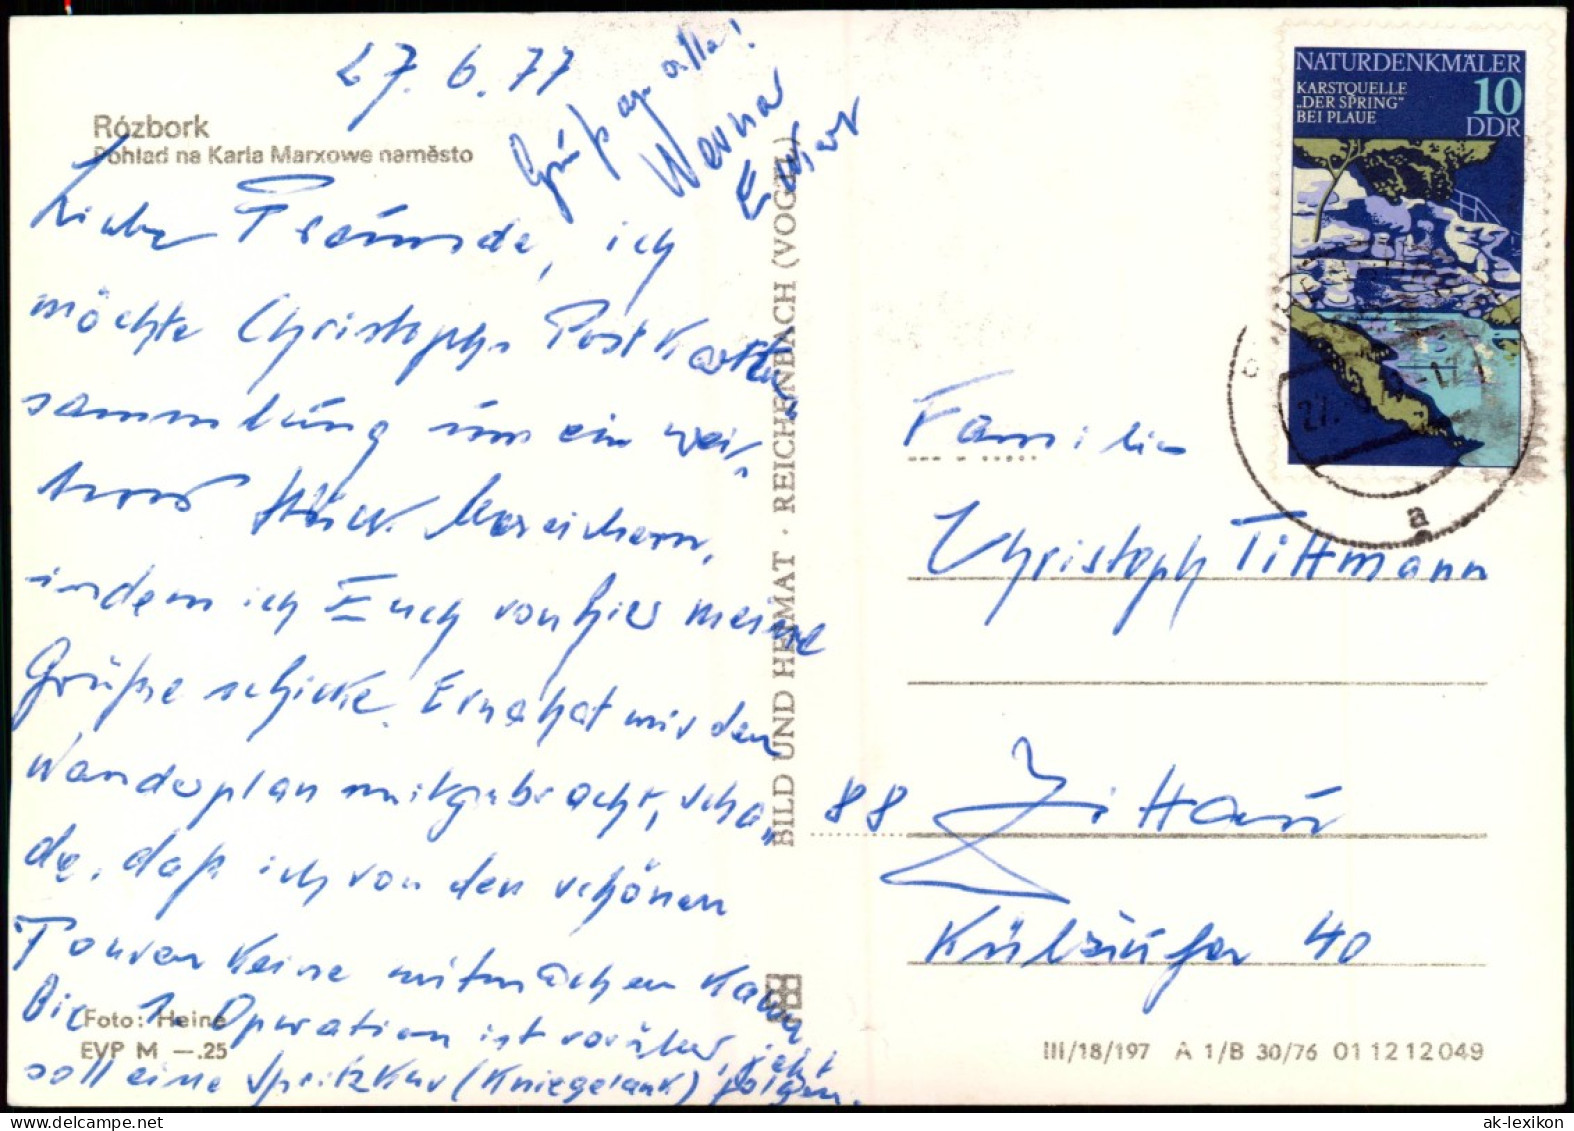 27.6.77
Grüße an alle!
Werner
Rózbork
Pohlad na Karla Marxowe naměsto
Liebe Freunde, ich
möchte Christophs Postkarten
sammlung um ein wei-
teres Stück bereichern,
indem ich Euch von hier meine
Grüße schicke. Erne hat mir den
Wanderplan mitgebracht, scha-
de, daß ich von den schönen
Touren keine mitmachen kann
Die 1. Operation ist vorüber, jetzt
soll eine Spritzkur (Kniegelenk) folgen.
Foto: Heine
EVP M —.25
BILD UND HEIMAT · REICHENBACH (VOGTL)
NATURDENKMÄLER
KARSTQUELLE
„DER SPRING"
BEI PLAUE
10
DDR
a
Familie
Christoph Tittmann
88 Zittau
Külzufer 40
III/18/197 A 1/B 30/76 01 12 12 049
ak-lexikon